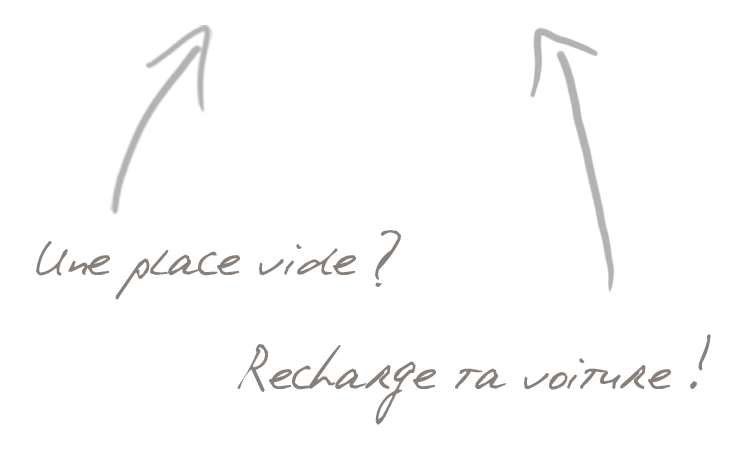 Une place vide ?
Recharge ta voiture !